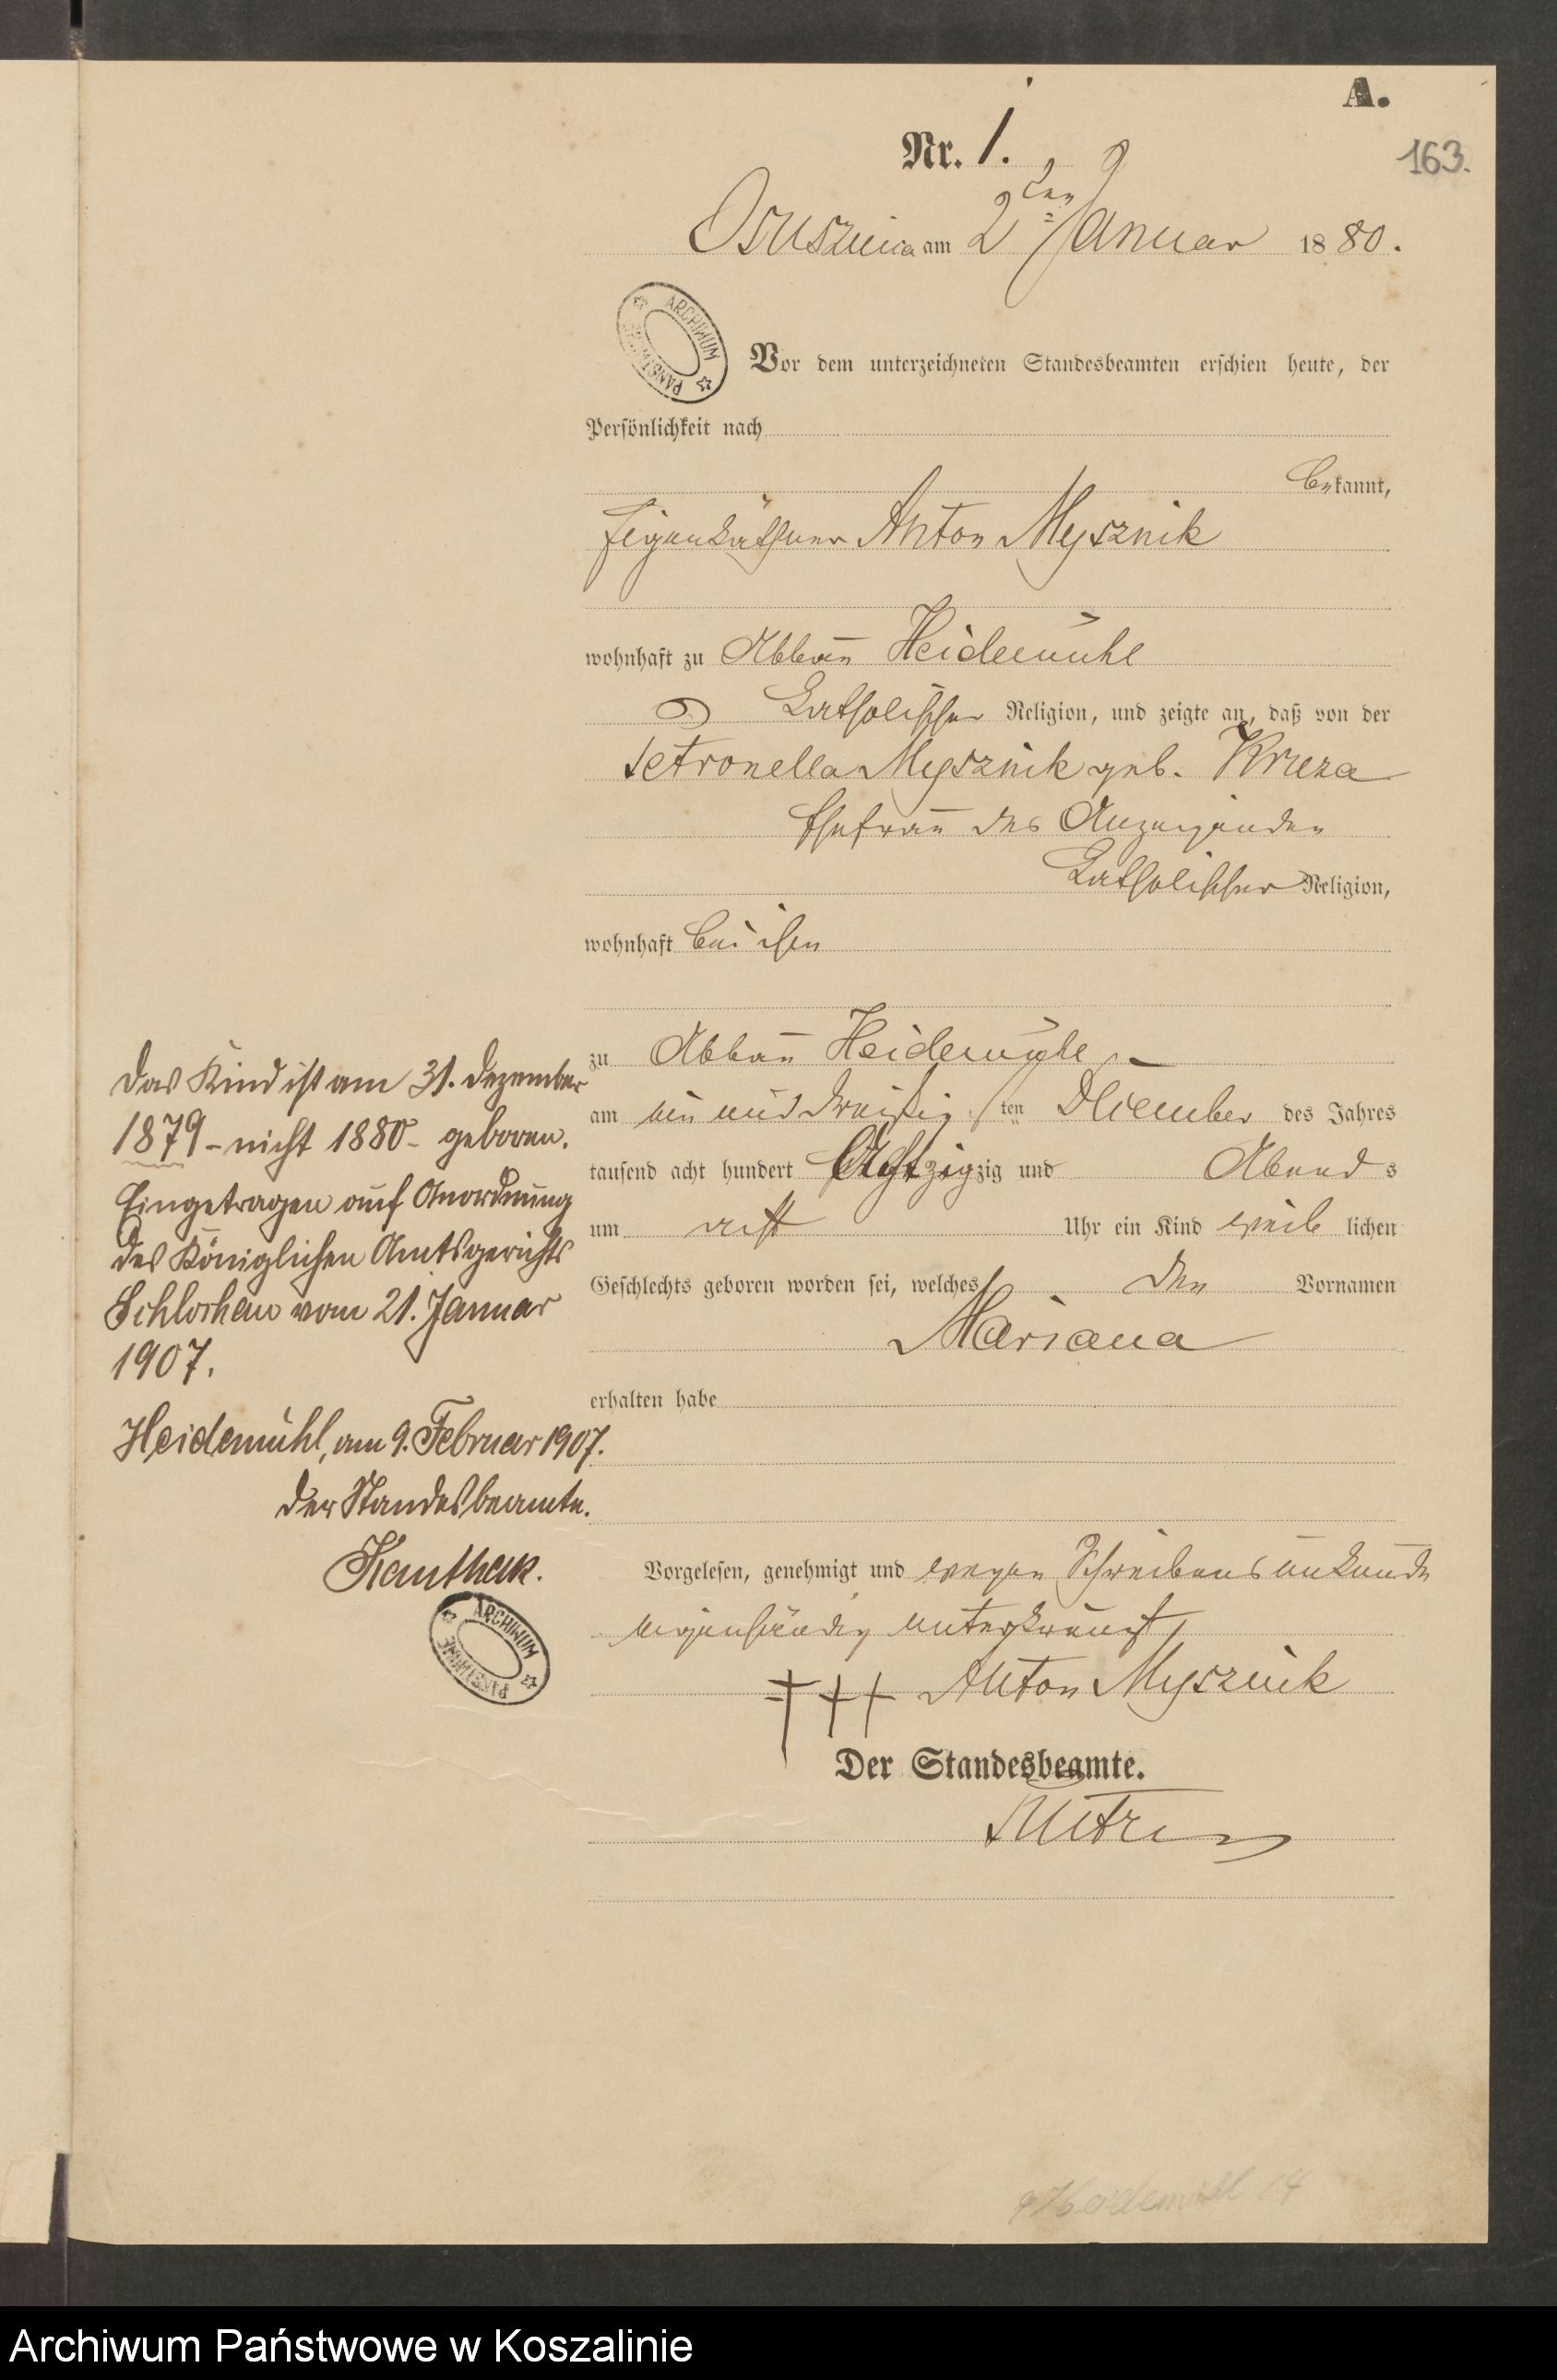 A.
163.
Nr. 1.
Osusznica am 2ten Januar 1880.
ARCHIWUM PAŃSTWOWE
Vor dem unterzeichneten Standesbeamten erschien heute, der
Persönlichkeit nach
bekannt,
Eigenkäthner Anton Mysznik
wohnhaft zu Abbau Heidemühl
katholischer Religion, und zeigte an, daß von der
Petronella Mysznik geb.
Ehefrau des Anzeigenden
katholischer Religion,
wohnhaft bei ihm
zu Abbau Heidemühl
am ein und dreißigsten Dezember des Jahres
tausend acht hundert Achtzigzig und Abends
um acht Uhr ein Kind weiblichen
Geschlechts geboren worden sei, welches den Vornamen
Mariana
erhalten habe
Das Kind ist am 31. Dezember
1879 - nicht 1880 - geboren.
Eingetragen auf Anordnung
des Königlichen Amtsgerichts
Schlochau vom 21. Januar
1907.
Heidemühl, am 9. Februar 1907.
Der Standesbeamte.
Kanthak.
ARCHIWUM PAŃSTWOWE
Vorgelesen, genehmigt und wegen Schreibensunkunde
eigenhändig unterkreuzt
+++ Anton Mysznik
Der Standesbeamte.
Heidemühl 14
Archiwum Państwowe w Koszalinie